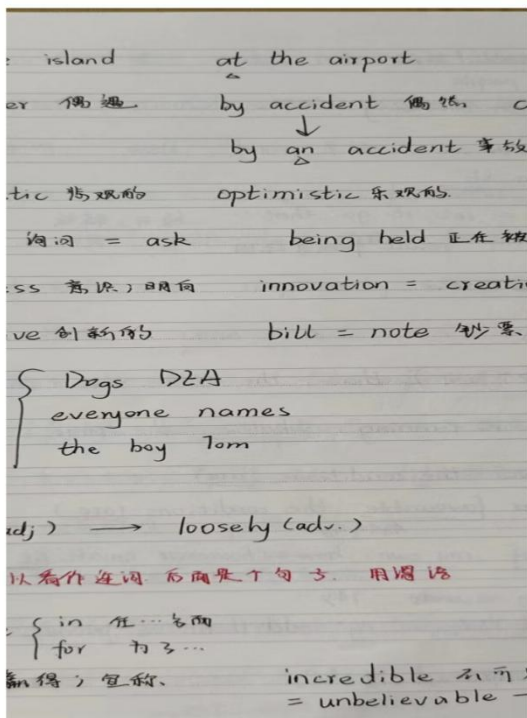 island at the airport
er 偶遇 by accident 偶然
by an accident 事故
tic 悲观的 optimistic 乐观的.
询问 = ask being held 正在被
ss 意识; innovation = creati
ve 创新的 bill = note 钞票
Dogs
everyone names
the boy Tom
adj) → loosely (adv.)
以看作连词 后面是个句子. 用谓语
in 在…方面
for 为了…
赢得; 宣称、 incredible 不可
= unbelievable